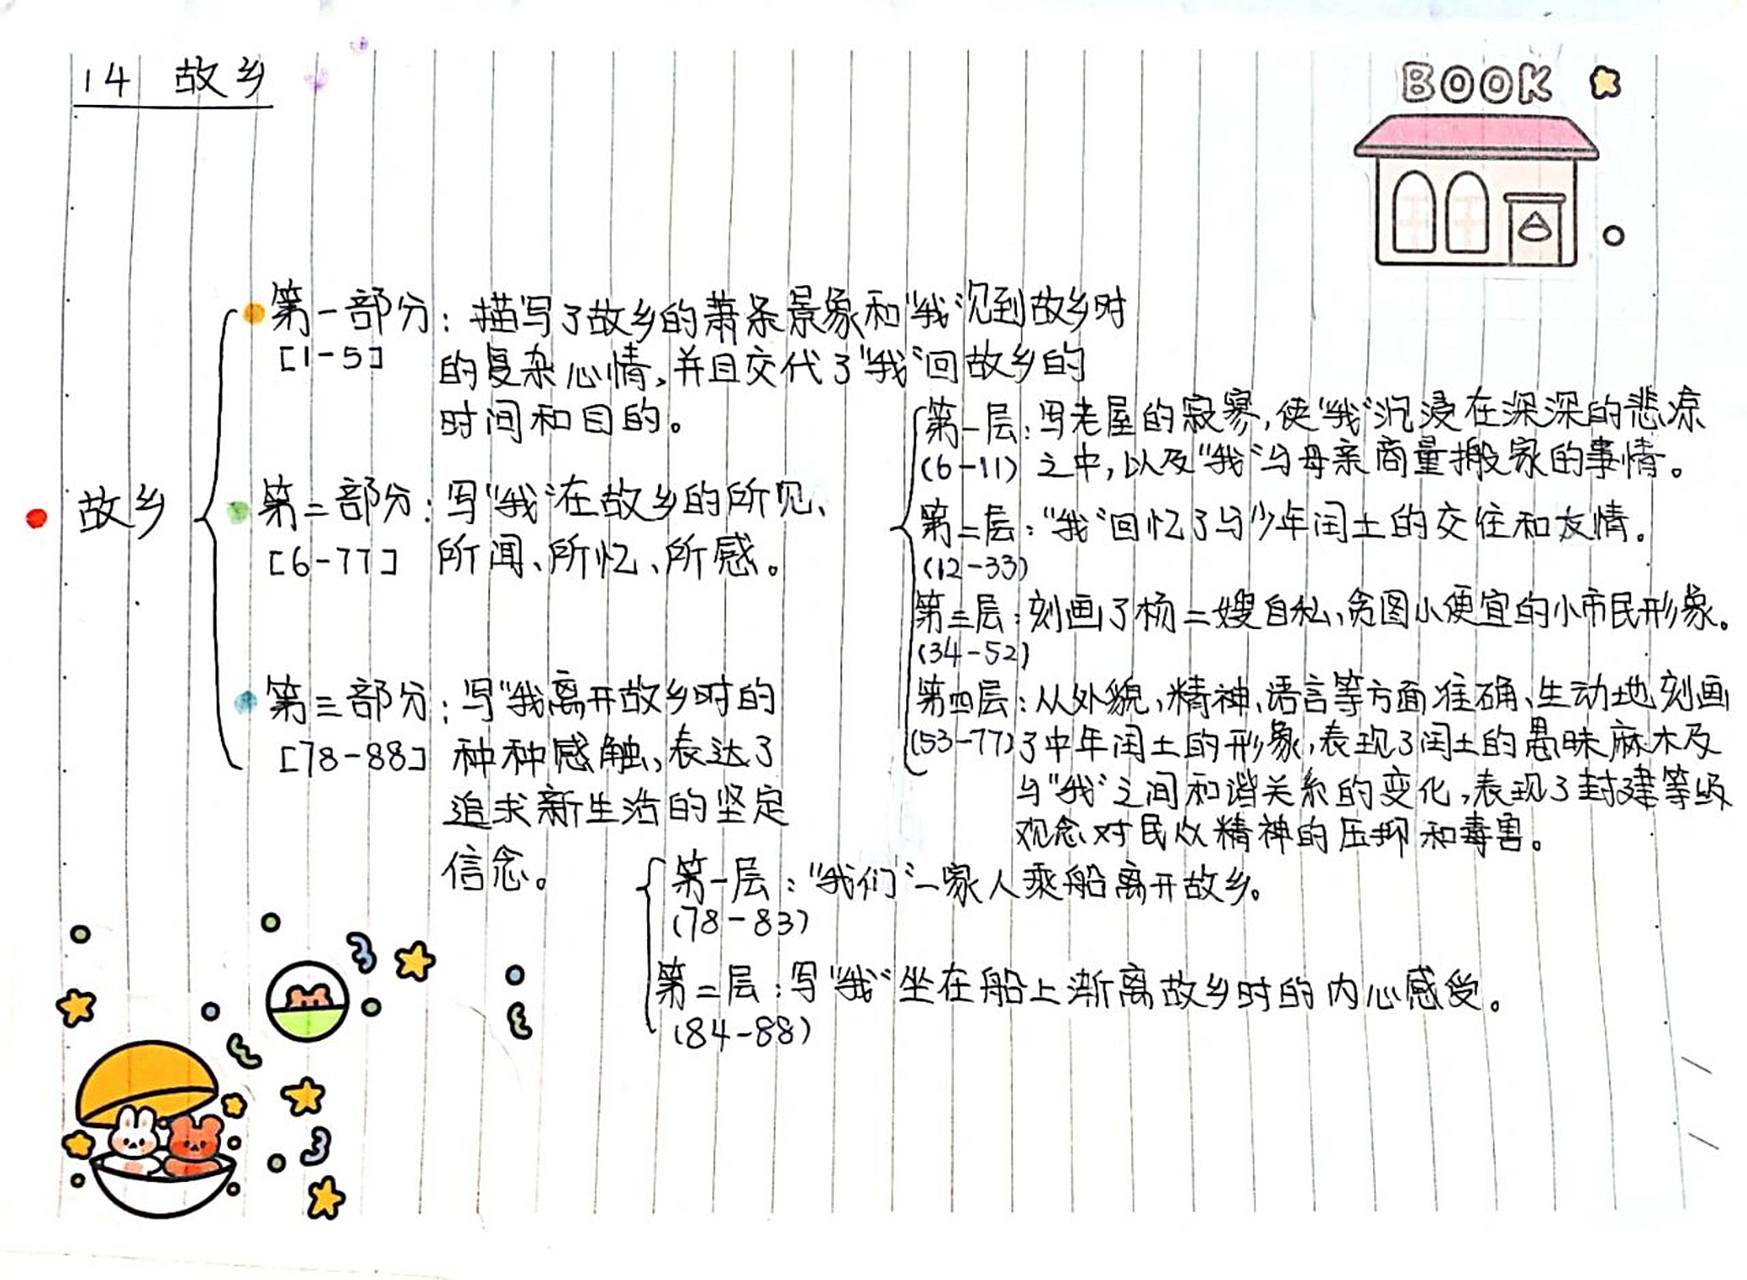 14 故乡
BOOK
故乡
第一部分：描写了故乡的萧条景象和“我”见到故乡时
[1-5] 的复杂心情，并且交代了“我”回故乡的
时间和目的。
第二部分：写“我”在故乡的所见、
[6-77] 所闻、所忆、所感。
第一层：写老屋的寂寥，使“我”沉浸在深深的悲凉
(6-11) 之中，以及“我”与母亲商量搬家的事情。
第二层：“我”回忆了与少年闰土的交往和友情。
(12-33)
第三层：刻画了杨二嫂自私、贪图小便宜的小市民形象。
(34-52)
第四层：从外貌、精神、语言等方面准确、生动地刻画
(53-77) 了中年闰土的形象，表现了闰土的愚昧麻木及
与“我”之间和谐关系的变化，表现了封建等级
观念对民众精神的压抑和毒害。
第三部分：写“我离开故乡时的
[78-88] 种种感触，表达了
追求新生活的坚定
信念。
第一层：“我们”一家人乘船离开故乡。
(78-83)
第二层：写“我”坐在船上渐离故乡时的内心感受。
(84-88)